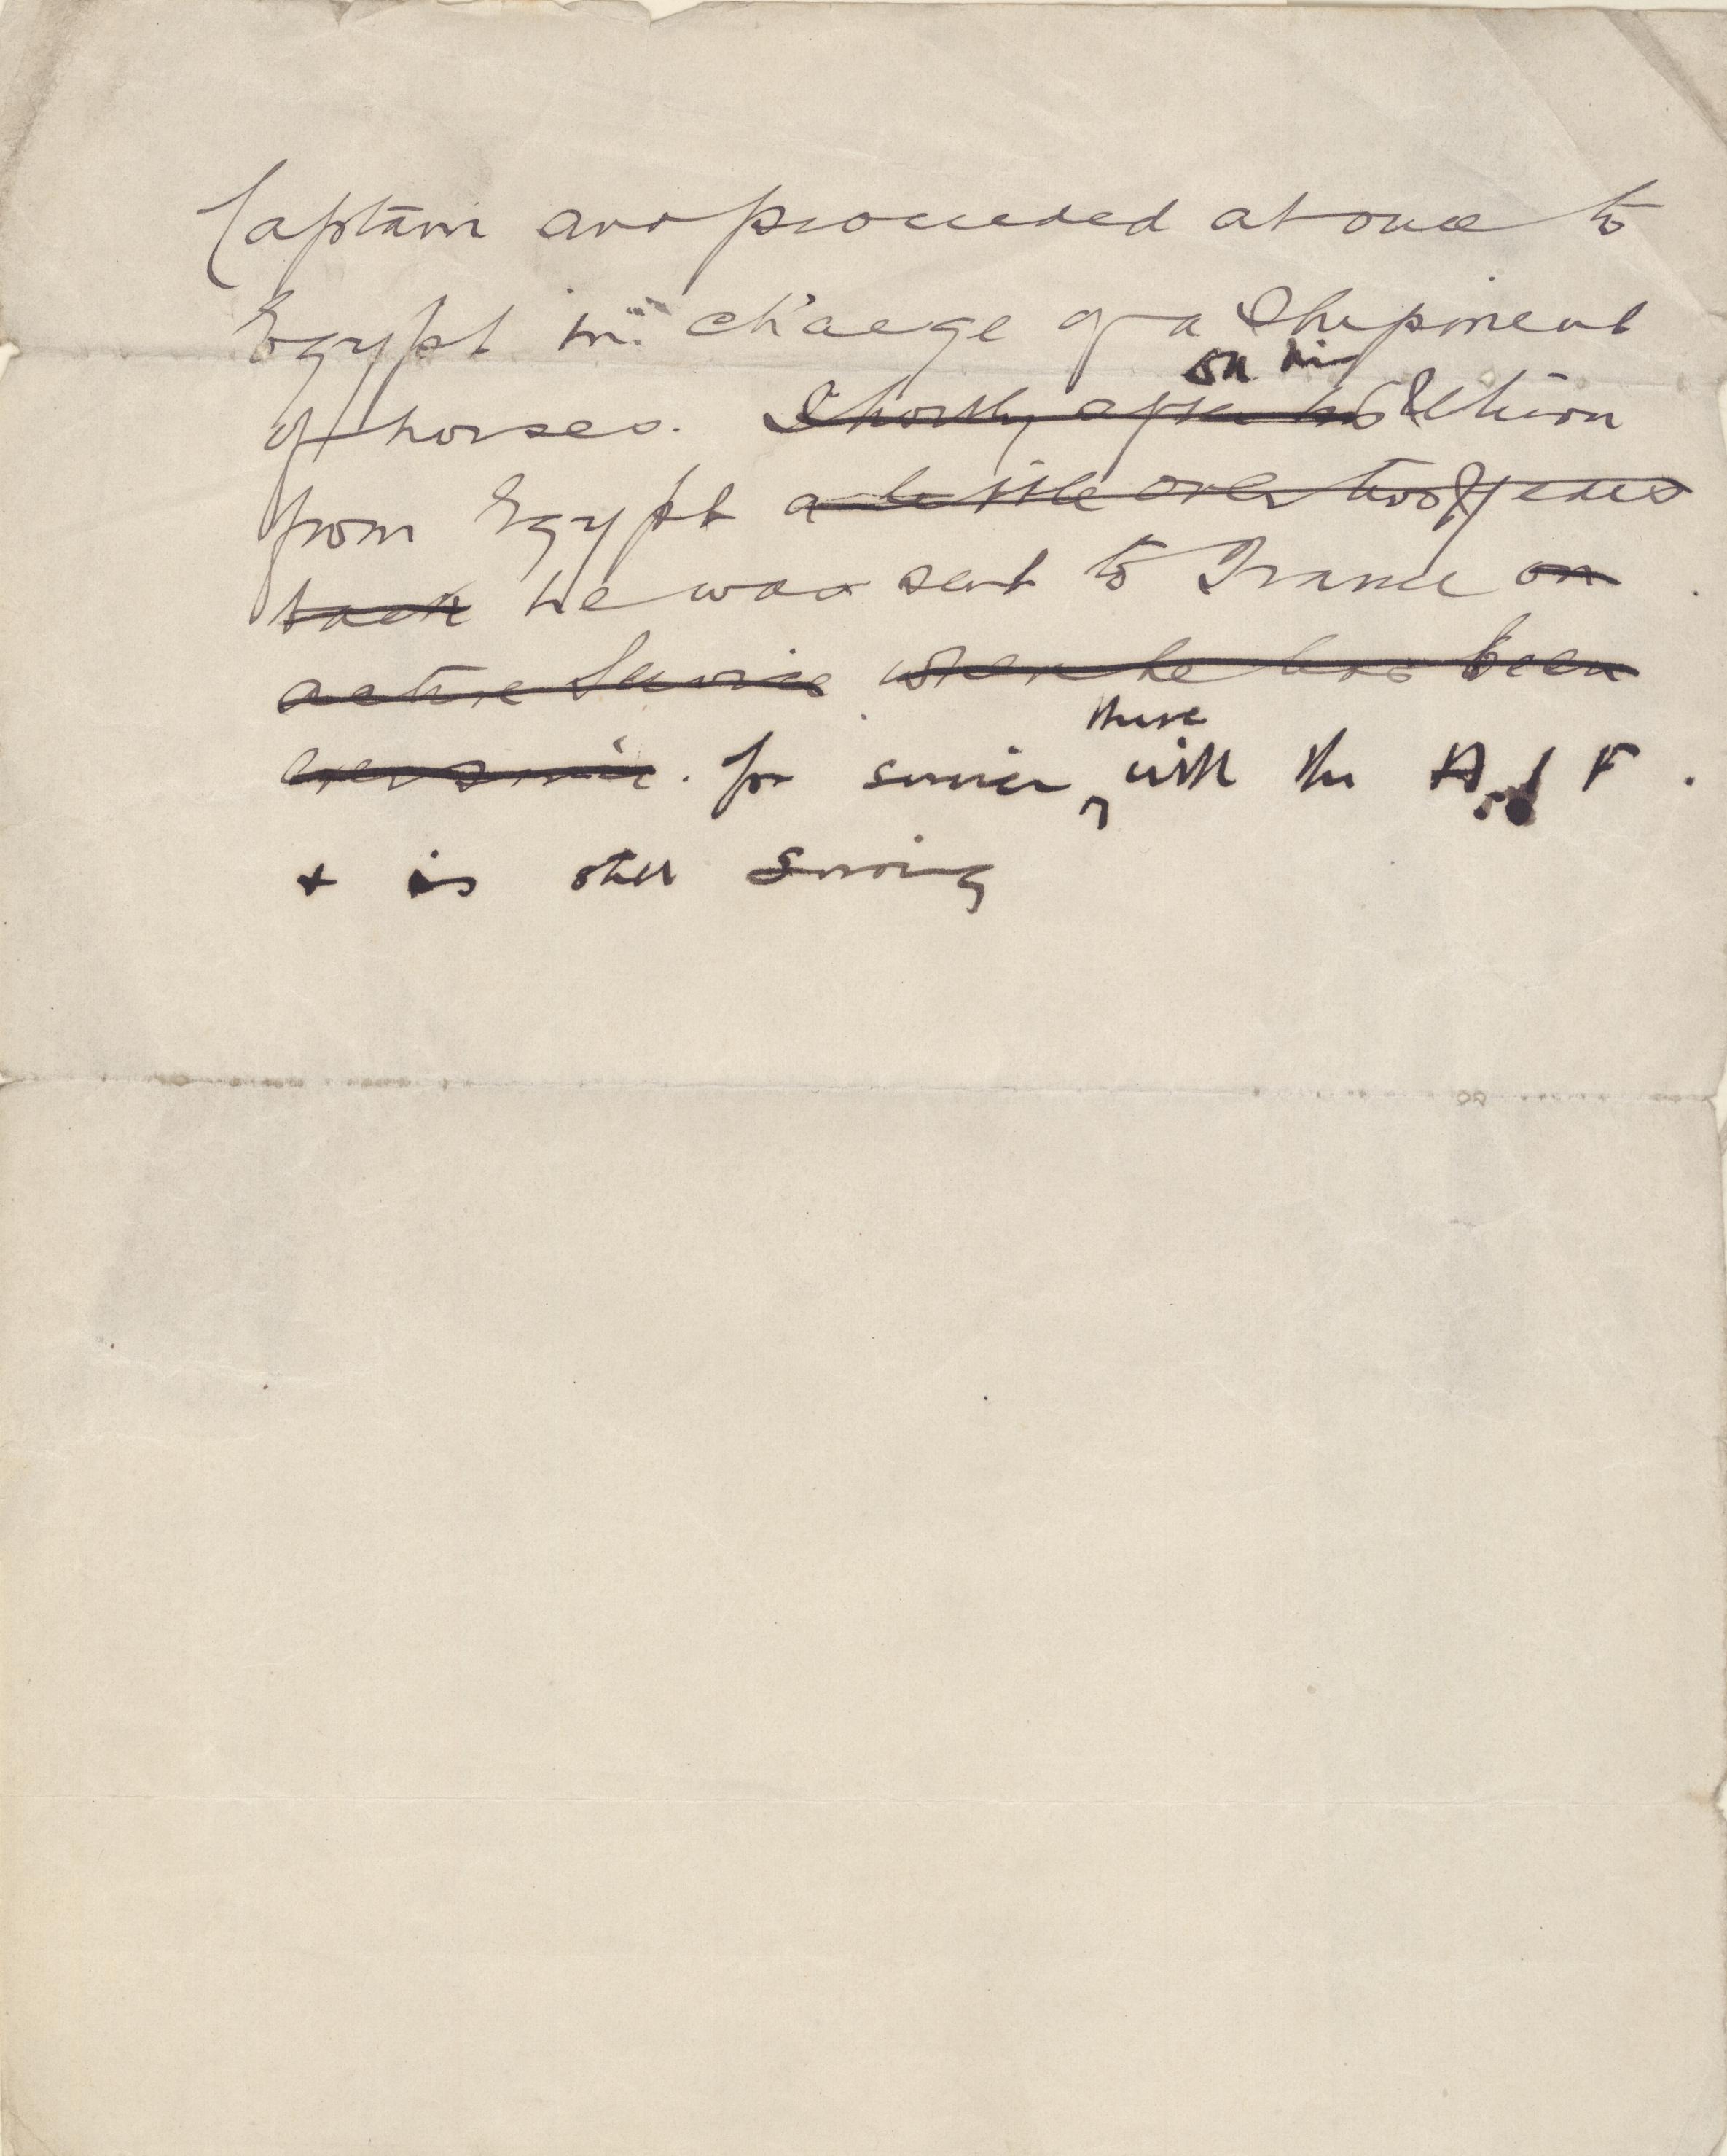 Captain and proceeded at once to
Egypt in charge of a Shipment
on his
of horses. Shortly after his Return
from Egypt a little over two years
back he was sent to France on
active Service where he has been
there
ever since. for service with the A.I.F.
& is still serving